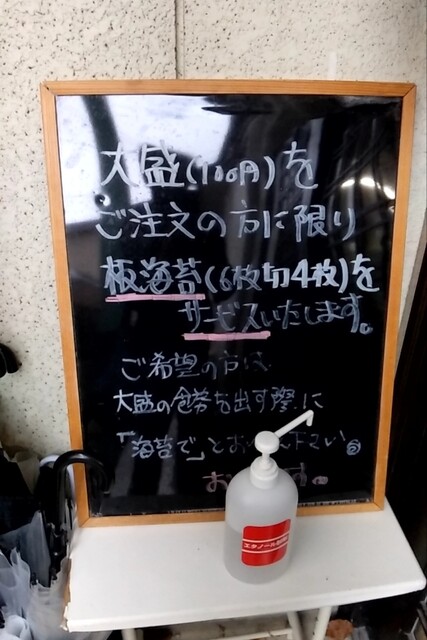 大盛(100円)を
ご注文の方に限り
板海苔(6枚切4枚)を
サービスいたします。
ご希望の方は
大盛の食券を出す際に
「海苔で」とお 下さい
お す。
エタノール